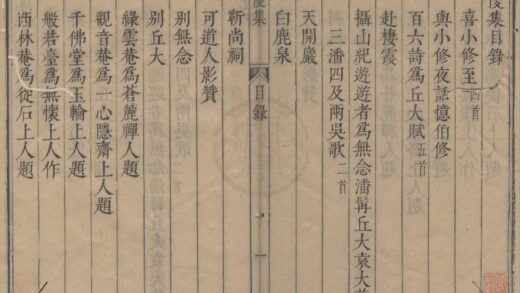 集目錄
喜小修至
與小修夜話憶伯修
百六詩爲丘大賦五首
赴棲霞
攝山紀遊遊者爲無念潘髯丘大袁大
三潘四及兩吳歌二首
天開巖
白鹿泉
集 目錄 一
靳尚祠
可道人影贊
別無念
別丘大
綠雲菴爲蒼麓禪人題
觀音菴爲一心隱齋上人題
千佛堂爲玉輪上人題
般若臺爲無懷上人作
西林菴爲從石上人題